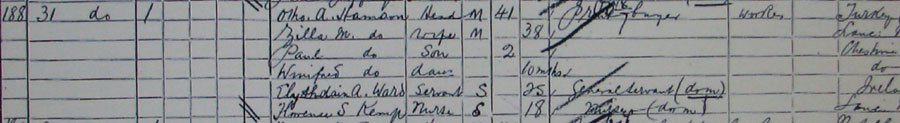 188 31 do 1 A. Hamson Head M 41 buyer worker Turkey
Zilla M. do wife M 38 Lanc:
Paul do Son 2 Cheshire
Winifred do daur 10 mths do
A. Ward Servant S 25 General Servant (dom)
Florence S Kemp Nurse S 18 Nurse (dom)